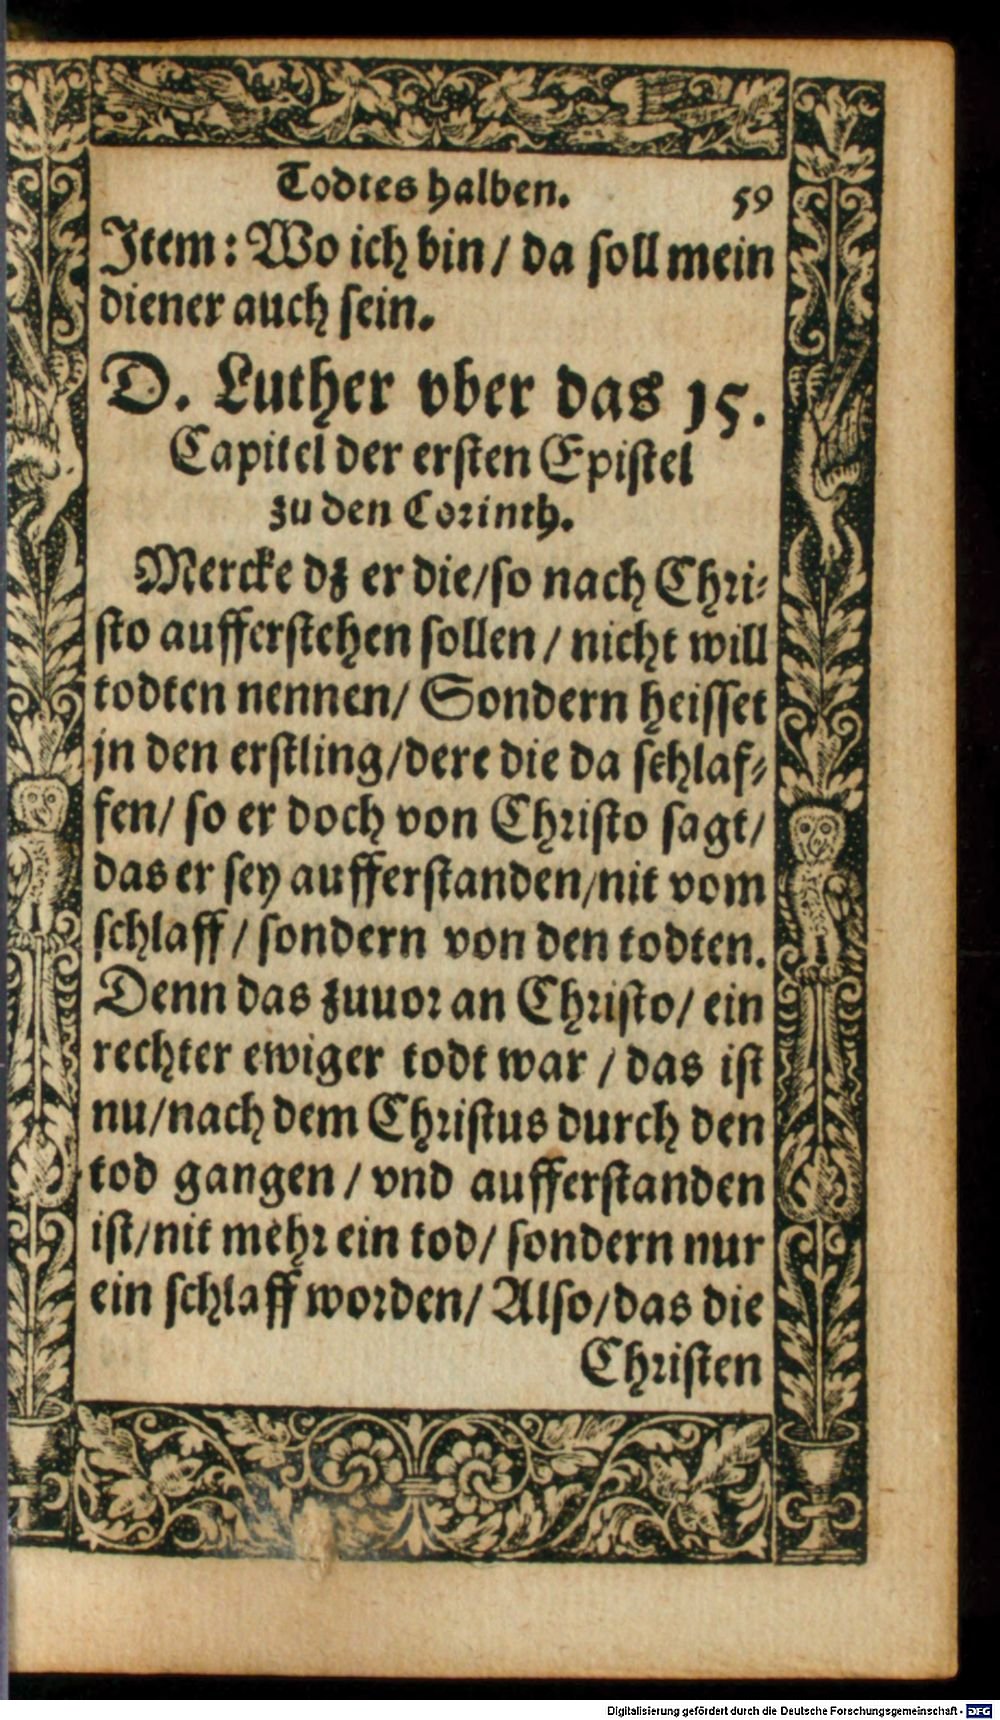 Todtes halben. 59
Item: Wo ich bin / da soll mein
diener auch sein.
D. Luther vber das 15.
Capitel der ersten Epistel
zu den Corinth.
Mercke dz er die/so nach Chri-
sto aufferstehen sollen / nicht will
todten nennen/ Sondern heisset
jn den erstling/dere die da schlaf-
fen/ so er doch von Christo sagt/
das er sey aufferstanden/nit vom
schlaff / sondern von den todten.
Denn das zuuor an Christo/ ein
rechter ewiger todt war / das ist
nu/nach dem Christus durch den
tod gangen / vnd aufferstanden
ist/nit mehr ein tod/ sondern nur
ein schlaff worden/ Also/das die
Christen
Digitalisierung gefördert durch die Deutsche Forschungsgemeinschaft - DFG